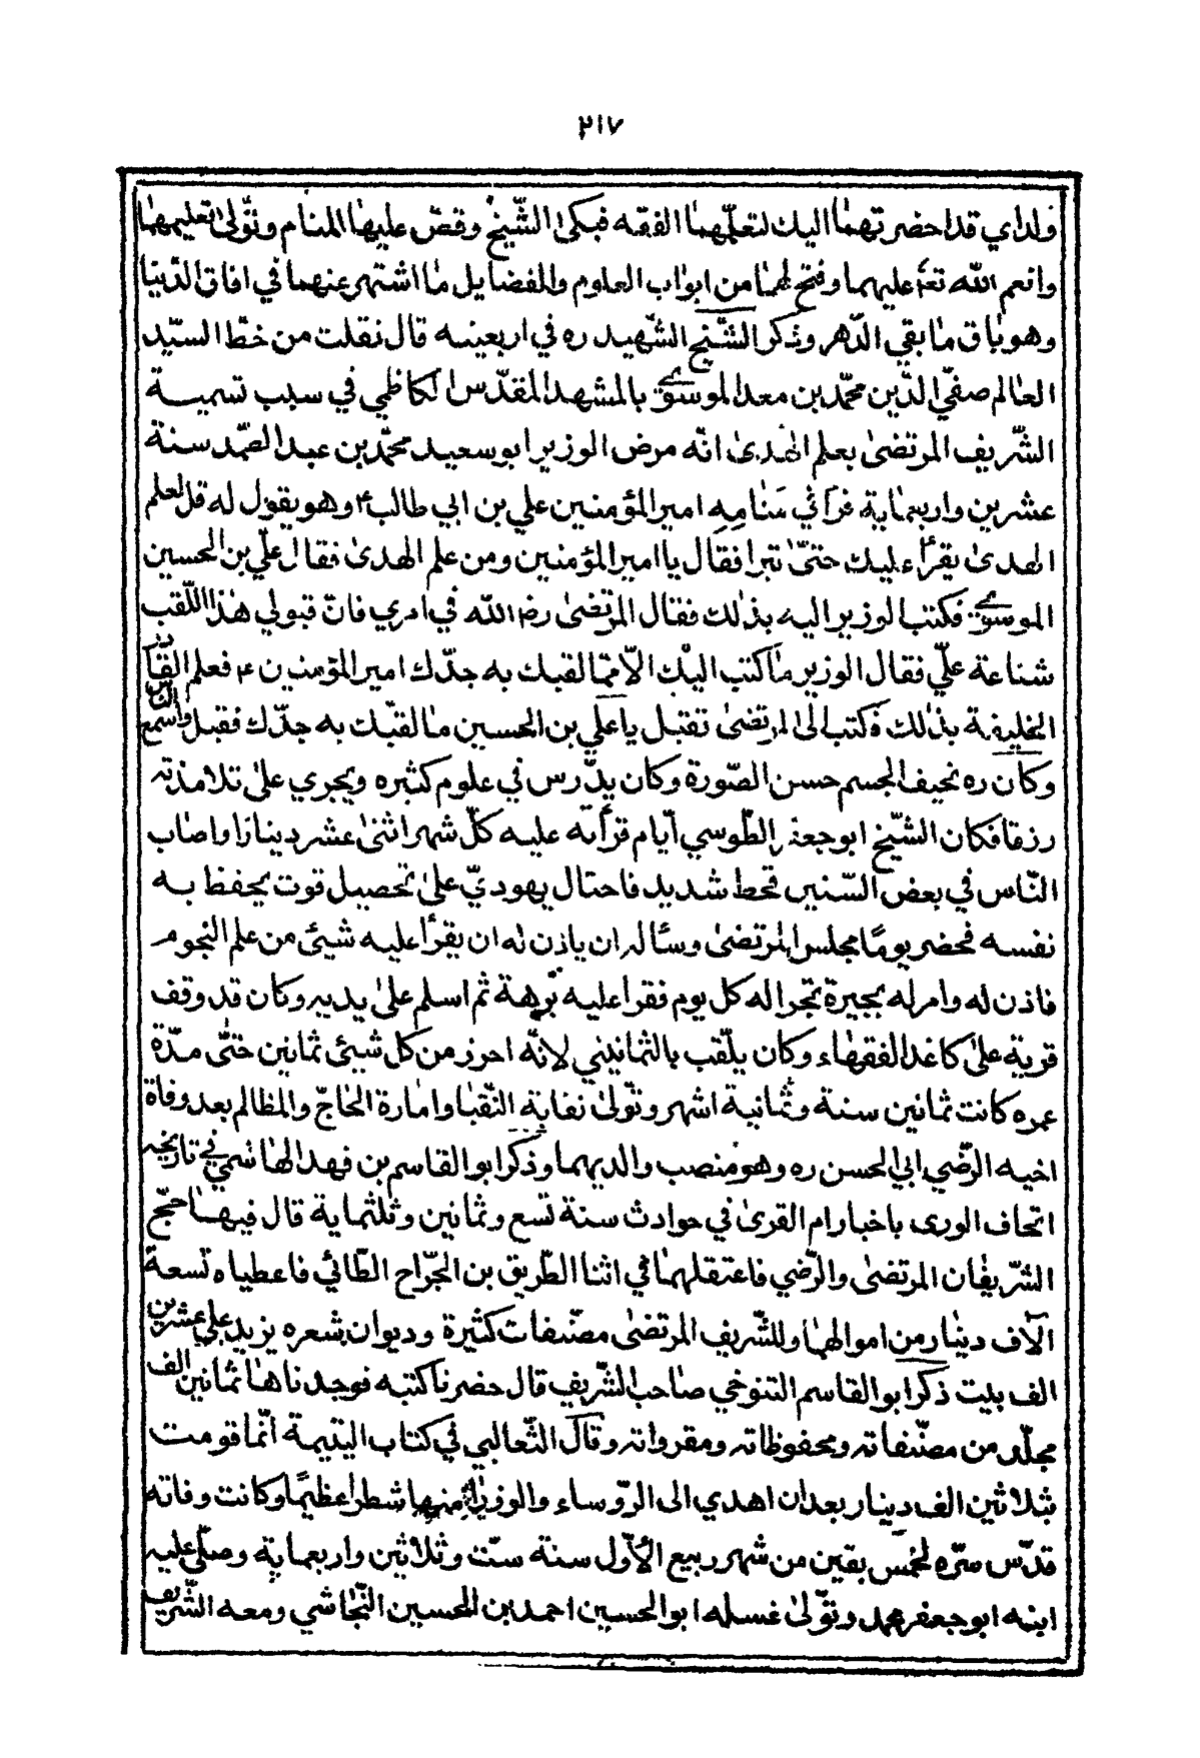 ٢١٧
ولداي قد احضرتهما اليك لتعلمهما الفقه فبكى الشيخ وقص عليها المنام وتولى تعليمهما
وانعم الله تعا عليهما وفتح لهما من ابواب العلوم والفضايل ما اشتهر عنهما في افاق الدنيا
وهو باق ما بقي الدهر وذكر الشيخ الشهيد ره في اربعينه قال نقلت من خط السيد
العالم صفي الدين محمد بن معد الموسوي بالمشهد المقدس الكاظمي في سبب تسمية
الشريف المرتضى بعلم الهدى انه مرض الوزير ابو سعيد محمد بن عبد الصمد سنة
عشرين واربعماية فرأى في منامه امير المؤمنين علي بن ابي طالب ع وهو يقول له قل لعلم
الهدى يقرأ عليك حتى تبرا فقال يا امير المؤمنين ومن علم الهدى فقال علي بن الحسين
الموسوي فكتب الوزير اليه بذلك فقال المرتضى رضه الله في امري فان قبولي هذا اللقب
شناعة علي فقال الوزير ما كتب اليك الا مما لقبك به جدك امير المؤمنين ع فعلم القادر
الخليفة بذلك فكتب الى المرتضى تقبل يا علي بن الحسين ما لقبك به جدك فقبل واسمع الناس
وكان ره نحيف الجسم حسن الصورة وكان يدرس في علوم كثيره ويجري على تلامذته
رزقا فكان الشيخ ابو جعفر الطوسي ايام قرأته عليه كل شهر اثنى عشر دينارا واصاب
الناس في بعض السنين قحط شديد فاحتال يهودي على تحصيل قوت يحفظ به
نفسه فحضر يوما مجلس المرتضى وسأله ان ياذن له ان يقرأ عليه شيئ من علم النجوم
فاذن له وامر له بجيرة تجرا له كل يوم فقرا عليه برهة ثم اسلم على يديه وكان قد وقف
قرية على كاغد الفقهاء وكان يلقب بالثمانيني لانه احرز من كل شيئ ثمانين حتى مدة
عمره كانت ثمانين سنة وثمانية اشهر وتولى نقابة النقبا وامارة الحاج والمظالم بعد وفاة
اخيه الرضي ابي الحسن ره وهو منصب والديهما وذكر ابو القاسم بن فهد الهاشمي في تاريخه
اتحاف الورى باخبار ام القرى في حوادث سنة تسع وثمانين وثلثماية قال فيها حج
الشريفان المرتضى والرضي فاعتقلهما في اثنا الطريق بن الجراح الطائي فاعطياه تسعة
الآف دينار من اموالهما وللشريف المرتضى مصنفات كثيرة وديوان بشعره يزيد على عشرين
الف بيت ذكر ابو القاسم التنوخي صاحب الشريف قال حضرنا كتبه فوجدناها ثمانين الف
مجلد من مصنفاته ومحفوظاته ومقرواته وقال الثعالبي في كتاب اليتيمة انما قومت
بثلاثين الف دينار بعد ان اهدي الى الروساء والوزراء منها شطرا عظيما وكانت وفاته
قدس سره لخمس بقين من شهر ربيع الأول سنة ست وثلاثين واربعماية وصلى عليه
ابنه ابو جعفر محمد وتولى غسله ابو الحسين احمد بن الحسين النجاشي ومعه الشريف